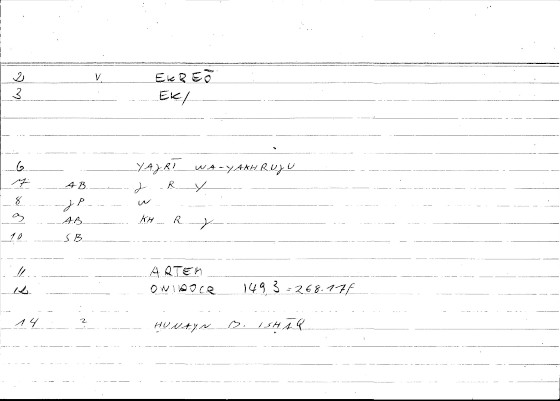 2 V EKREŌ
3 EK/
6 YAJRĪ WA-YAKHRUJU
7 AB J R Y
8 JP W
9 AB KH R J
10 SB
11 ARTEM
12 ONIROCR 149,3 = 268.17f
14 2 ḤUNAYN B. ISḤĀQ